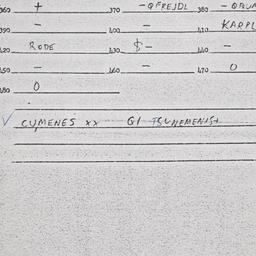 360 + 370 - QFREJDL 380 -
390 - 400 - 410 KARPL
420 RODE 430 $- 440 -
450 - 460 - 470 0
480 0
✓ CUMENES xx GI